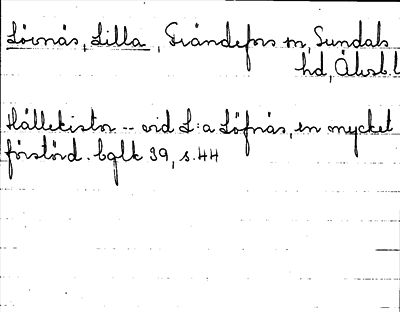 Lövnäs, Lilla, Frändefors sn, Sundals
hd, Älvsb.l
Hällekistor -- vid L:a Löfnäs, en mycket
förstörd. bglk 39, s. 44